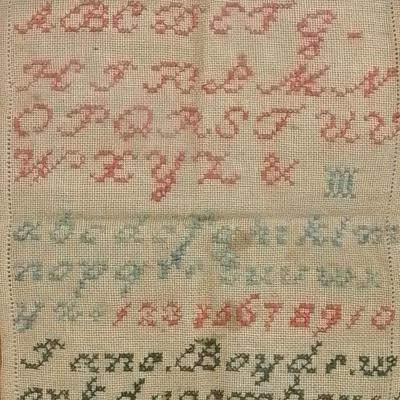 A B C D E F G -
H I K L M N
O P Q R S T U V
W X Y Z & M
a b c d e f g h i k l m
n o p q r s t u v w x
y z 1 2 3 4 5 6 7 8 9 10
Jane. Boyd. w